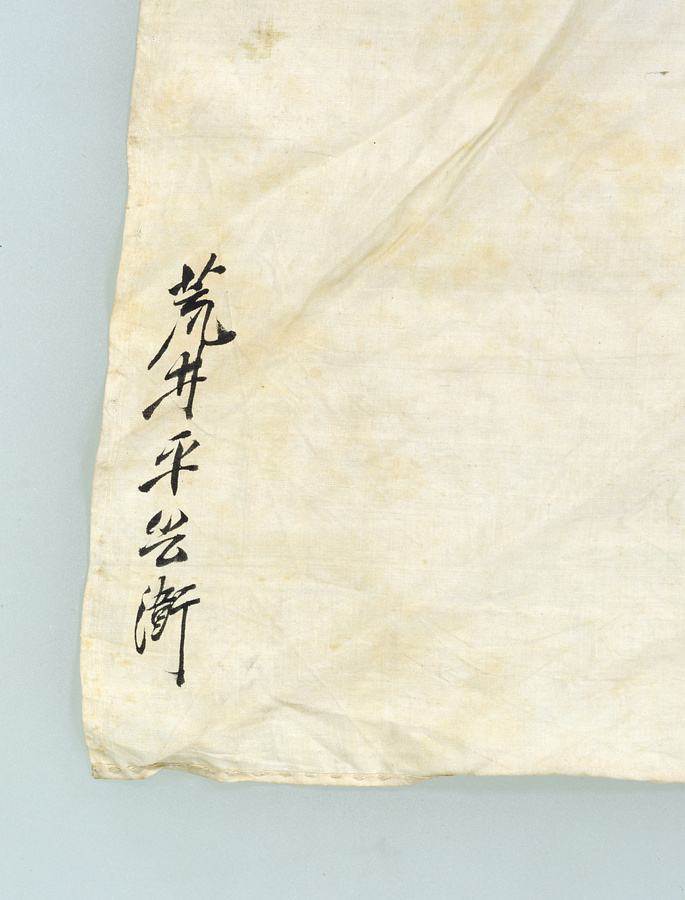 荒井平兵衛